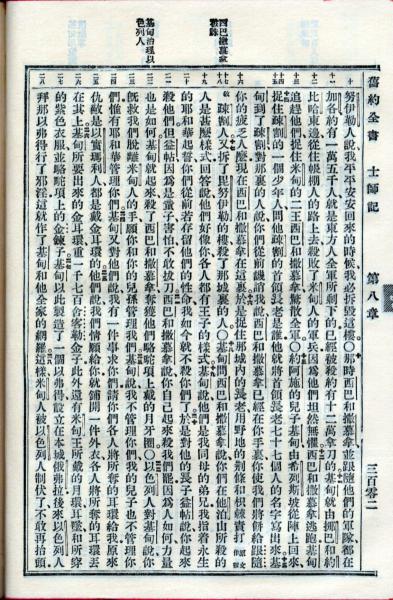 舊約全書 士師記 第八章 三百零二
西巴撒慕拿
被誅
基甸治理以
色列人
努伊勒人說我平平安安回來的時候我必拆毀這樓〇那時西巴和撒慕拿並跟隨他們的軍隊都在
加各約有一萬五千人就是東方人全軍所剩下的已經被殺約有十二萬拿刀的基甸就由挪巴和約
比哈東邊從住帳棚人的路上去殺敗了米甸人的軍兵因為他們坦然無懼西巴和撒慕拿逃跑基甸
追趕他們捉住米甸的二王西巴和撒慕拿驚散全軍〇約阿施的兒子基甸由希列斯坡從陣上回來
捉住疏割的一個少年人問他疏割的首領長老是誰他就將首領長老七十七個人的名字寫出來基
甸到了疏割對那裏的人說你們從前譏誚我說西巴和撒慕拿已經在你手裏你使我們將餅給跟隨
你的疲乏人麼現在西巴和撒慕拿在這裏於是捉住那城內的長老用野地的荊條和枳棘責打
疏割人又拆了毘努伊勒的樓殺了那城裏的人〇基甸問西巴和撒慕拿說你們在他泊山所殺的
人是甚麼樣式回答說他們好像你各人都有王子的樣式基甸說他們是我同母的弟兄我指着永生
的耶和華起誓你們從前若存留他們的性命我如今就不殺你們了於是對他的長子益帖說你起來
殺他們但益帖因為是童子害怕不敢拔刀西巴和撒慕拿說你自己起來殺我們罷因為人如何力量
也是如何基甸就起來殺了西巴和撒慕拿奪獲他們駱駝項上戴的月牙圈〇以色列人對基甸說你
既救我們脫離米甸人的手願你和你的兒孫管理我們基甸說我不管理你們我的兒子也不管理你
們惟有耶和華管理你們基甸又對他們說我有一件事求你們請你們各人將所奪的耳環給我原來
仇敵是以實瑪利人都是戴金耳環的他們說我們情願給你就鋪開一件外衣各人將所奪的耳環丟
在其上基甸所要出來的金耳環重一千七百舍客勒金子此外還有米甸王所戴的月環耳墜和所穿
的紫色衣服並駱駝項上的金鍊子基甸以此製造了一個以弗得設立在本城俄弗拉後來以色列人
拜那以弗得行了邪淫這就作了基甸和他全家的網羅這樣米甸人被以色列人制伏了不敢再抬頭